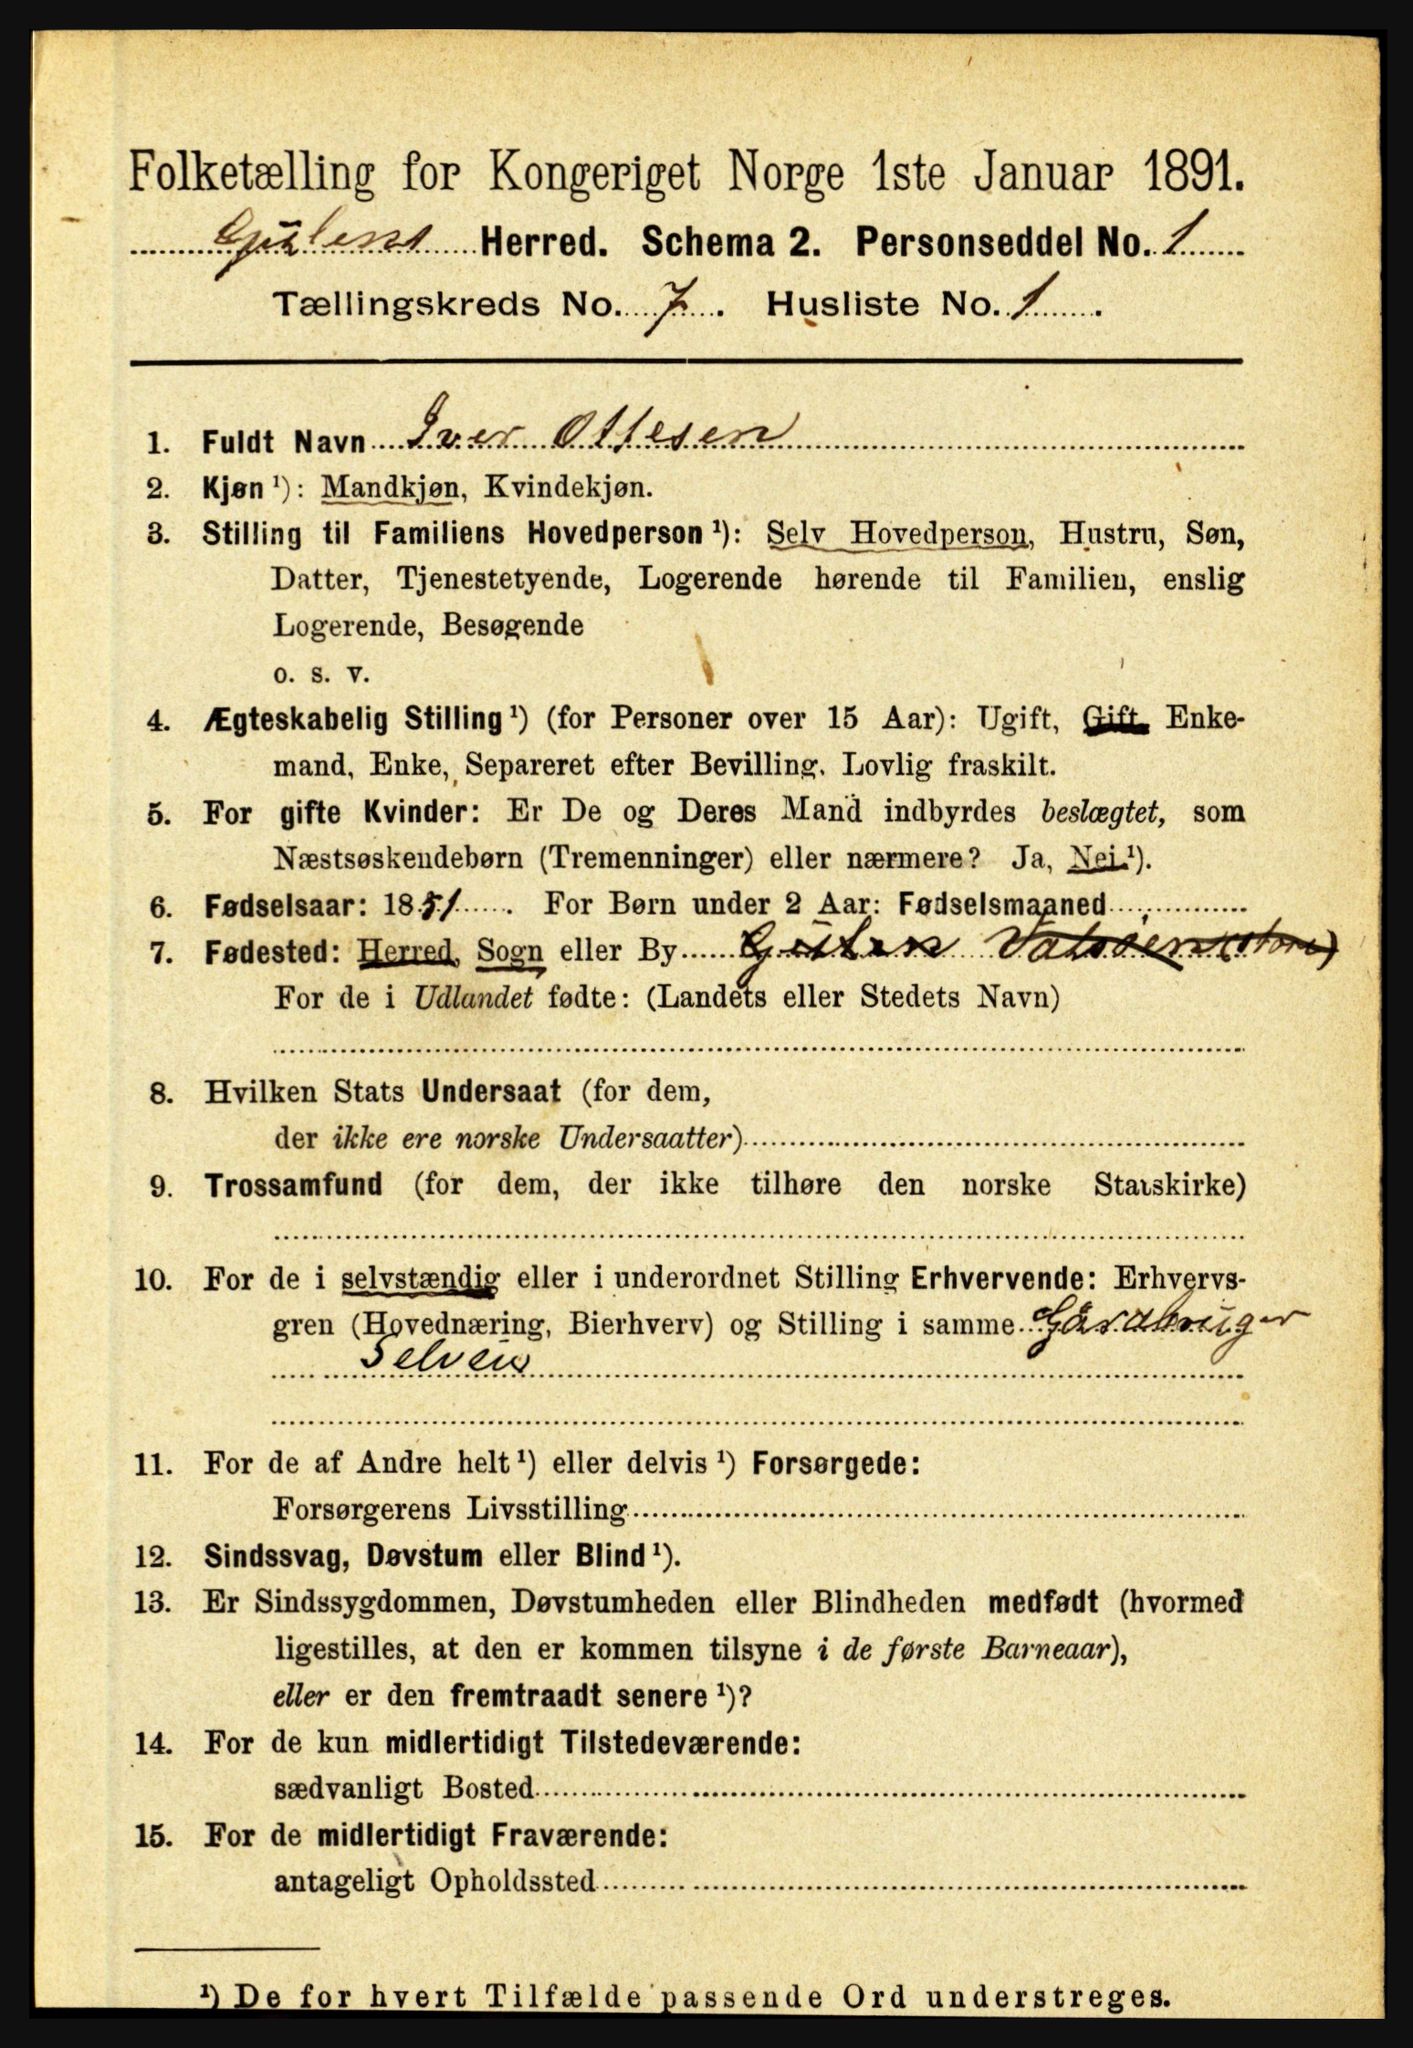 Folketælling for Kongeriget Norge 1ste Januar 1891.
Gulens Herred. Schema 2. Personseddel No. 1
Tællingskreds No. 7. Husliste No. 1.
1. Fuldt Navn Iver Ottesen
2. Kjøn ¹): Mandkjøn, Kvindekjøn.
3. Stilling til Familiens Hovedperson ¹): Selv Hovedperson, Hustru, Søn,
Datter, Tjenestetyende, Logerende hørende til Familien, enslig
Logerende, Besøgende
o. s. v.
4. Ægteskabelig Stilling ¹) (for Personer over 15 Aar): Ugift, Gift, Enke-
mand, Enke, Separeret efter Bevilling. Lovlig fraskilt.
5. For gifte Kvinder: Er De og Deres Mand indbyrdes beslægtet, som
Næstsøskendebørn (Tremenninger) eller nærmere? Ja, Nei ¹).
6. Fødselsaar: 1851. For Børn under 2 Aar: Fødselsmaaned
7. Fødested: Herred, Sogn eller By Gulen
For de i Udlandet fødte: (Landets eller Stedets Navn)
8. Hvilken Stats Undersaat (for dem,
der ikke ere norske Undersaatter)
9. Trossamfund (for dem, der ikke tilhøre den norske Statskirke)
10. For de i selvstændig eller i underordnet Stilling Erhvervende: Erhvervs-
gren (Hovednæring, Bierhverv) og Stilling i samme Gårdbruger
Selveier
11. For de af Andre helt ¹) eller delvis ¹) Forsørgede:
Forsørgerens Livsstilling
12. Sindssvag, Døvstum eller Blind ¹).
13. Er Sindssygdommen, Døvstumheden eller Blindheden medfødt (hvormed
ligestilles, at den er kommen tilsyne i de første Barneaar),
eller er den fremtraadt senere ¹)?
14. For de kun midlertidigt Tilstedeværende:
sædvanligt Bosted
15. For de midlertidigt Fraværende:
antageligt Opholdssted
¹) De for hvert Tilfælde passende Ord understreges.